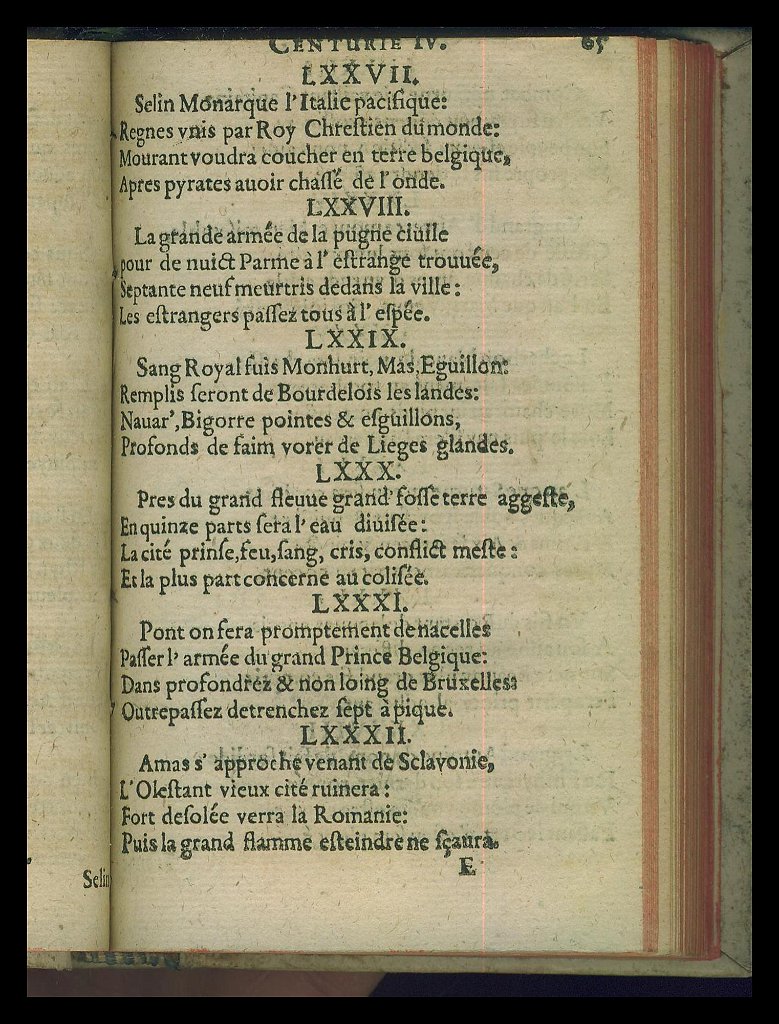 CENTURIE IV. 65
LXXVII.
Selin Monarque l'Italie pacifique:
Regnes vnis par Roy Chreſtien du monde:
Mourant voudra coucher en terre belgique,
Apres pyrates auoir chaſſé de l'onde.
LXXVIII.
La grande armée de la pugne ciuile
pour de nuict Parme à l' eſtrange trouuée,
Septante neuf meurtris dedans la ville:
Les eſtrangers paſſez tous à l' eſpée.
LXXIX.
Sang Royal fuis Monhurt, Mas, Eguillon:
Remplis ſeront de Bourdelois les landes:
Nauar', Bigorre pointes & eſguillons,
Profonds de faim vorer de Lieges glandes.
LXXX.
Pres du grand fleuue grand' foſſe terre aggeſte,
En quinze parts ſera l'eau diuiſée:
La cité prinſe, feu, ſang, cris, conflict meſte:
Et la plus part concerne au coliſée.
LXXXI.
Pont on fera promptement de nacelles
Paſſer l' armée du grand Prince Belgique:
Dans profondrez & non loing de Bruxelles:
Outrepaſſez detrenchez ſept à pique.
LXXXII.
Amas s' approche venant de Sclavonie,
L'Oleſtant vieux cité ruinera:
Fort deſolée verra la Romanie:
Puis la grand flamme eſteindre ne ſçaura.
E
Selin